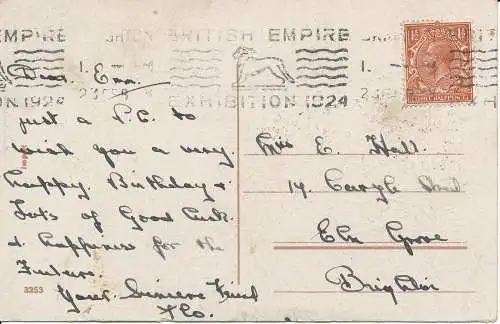 EMPIRE BRIGHTON BRITISH EMPIRE BRIGHTON
EXHIBITION 1924 EXHIBITION 1924
THREE HALFPENCE
Dear Em.
just a P.C. to
wish you a very
happy Birthday &
Lots of Good Luck
& happiness for the
Future
Your Sincere Friend
Flo.
Mrs E. Hall.
14. Street
Elm Grove
Brighton
3353